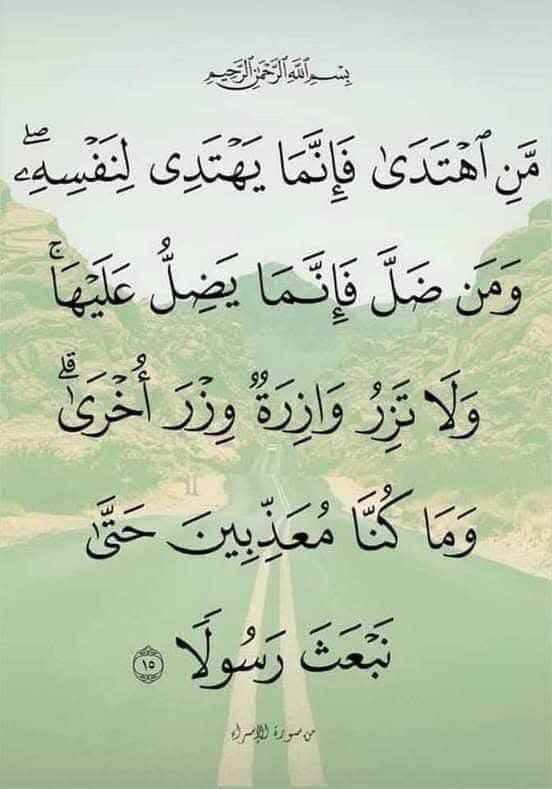 بِسْمِ ٱللَّهِ ٱلرَّحْمَٰنِ ٱلرَّحِيمِ
مَّنِ ٱهْتَدَىٰ فَإِنَّمَا يَهْتَدِى لِنَفْسِهِۦ ۖ
وَمَن ضَلَّ فَإِنَّمَا يَضِلُّ عَلَيْهَا ۚ
وَلَا تَزِرُ وَازِرَةٌ وِزْرَ أُخْرَىٰ ۗ
وَمَا كُنَّا مُعَذِّبِينَ حَتَّىٰ
نَبْعَثَ رَسُولًا ١٥
من سورة الإسراء